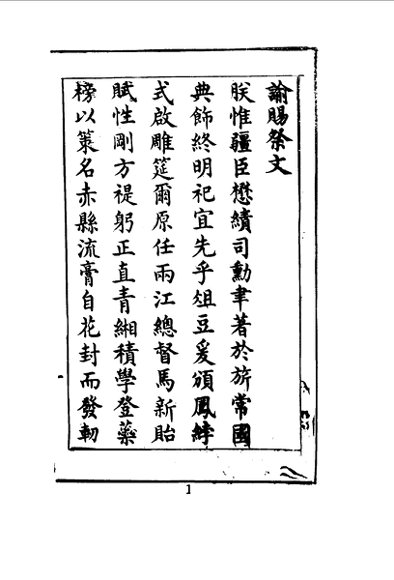 諭賜祭文
朕惟疆臣懋績司勳聿著於旂常國
典飾終明祀宜先乎俎豆爰頒鳳綍
式啟雕筵爾原任兩江總督馬新貽
賦性剛方禔躬正直青緗積學登蘂
榜以策名赤縣流膏自花封而發軔
1